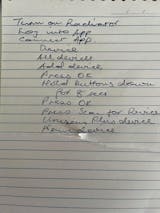 Turn on Radiator
Log into App
Connect App
Device
All devices
Add device
Press OK
Hold buttons down
For 8 secs
Press OK
Press Scan for Device
Plus device
device